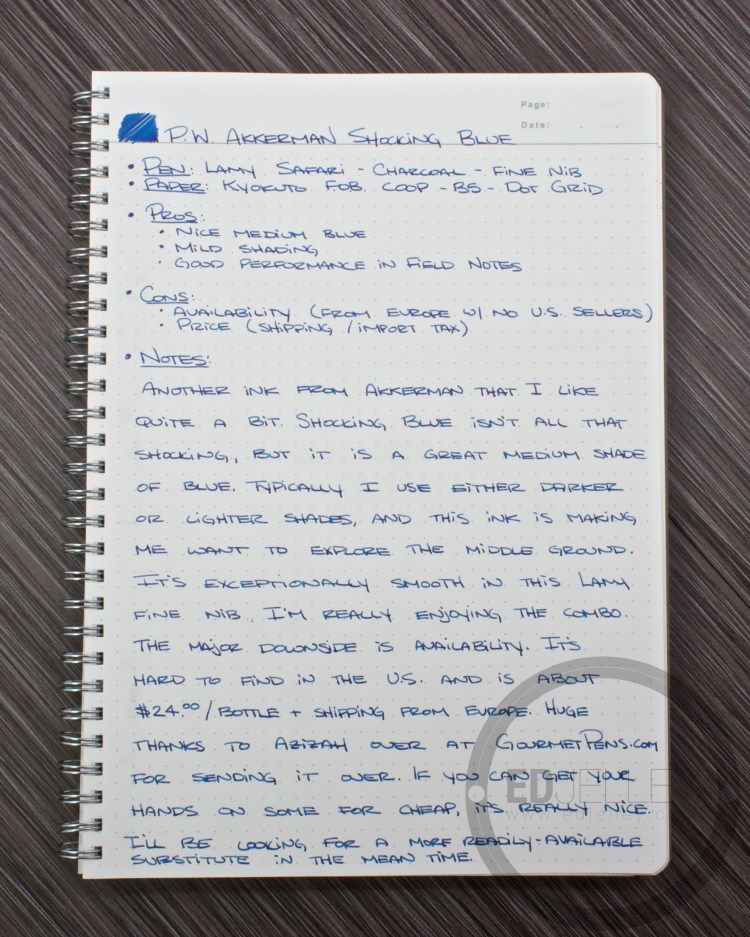 Page:
Date: . .
P.W. AKKERMAN SHOCKING BLUE
• PEN: LAMY SAFARI - CHARCOAL - FINE NIB
• PAPER: KYOKUTO F.O.B. COOP - B5 - DOT GRID
• PROS:
• NICE MEDIUM BLUE
• MILD SHADING
• GOOD PERFORMANCE IN FIELD NOTES
• CONS:
• AVAILABILITY (FROM EUROPE W/ NO U.S. SELLERS)
• PRICE (SHIPPING / IMPORT TAX)
• NOTES:
ANOTHER INK FROM AKKERMAN THAT I LIKE
QUITE A BIT. SHOCKING BLUE ISN'T ALL THAT
SHOCKING, BUT IT IS A GREAT MEDIUM SHADE
OF BLUE. TYPICALLY I USE EITHER DARKER
OR LIGHTER SHADES, AND THIS INK IS MAKING
ME WANT TO EXPLORE THE MIDDLE GROUND.
IT'S EXCEPTIONALLY SMOOTH IN THIS LAMY
FINE NIB, I'M REALLY ENJOYING THE COMBO.
THE MAJOR DOWNSIDE IS AVAILABILITY. IT'S
HARD TO FIND IN THE U.S. AND IS ABOUT
$24.00/BOTTLE + SHIPPING FROM EUROPE. HUGE
THANKS TO AZIZAH OVER AT GOURMETPENS.COM
FOR SENDING IT OVER. IF YOU CAN GET YOUR
HANDS ON SOME FOR CHEAP, IT'S REALLY NICE.
I'LL BE LOOKING FOR A MORE READILY-AVAILABLE
SUBSTITUTE IN THE MEAN TIME.
EDJELLEY
www.edjelley.c